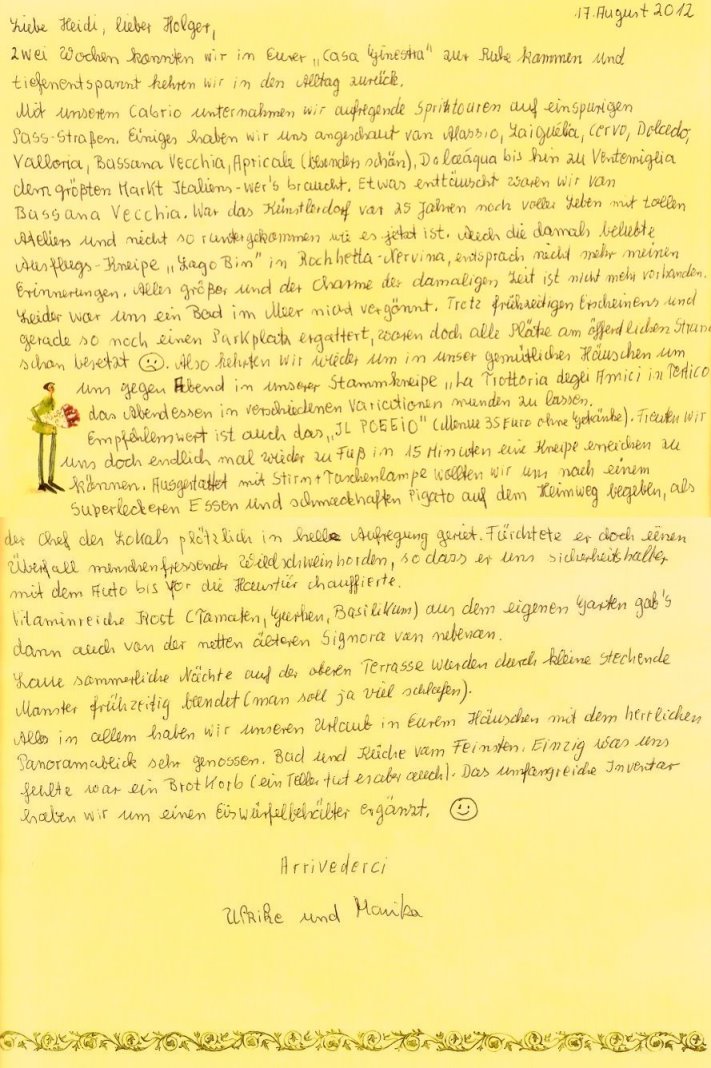 17. August 2012
Liebe Heidi, lieber Holger,
zwei Wochen konnten wir in Eurer „Casa Ginestra" zur Ruhe kommen und
tiefenentspannt kehren wir in den Alltag zurück.
Mit unserem Cabrio unternahmen wir aufregende Spritztouren auf einspurigen
Pass-Straßen. Einiges haben wir uns angeschaut von Alassio, Laiguélia, Cervo, Dolcedo,
Valloria, Bussana Vecchia, Apricale (besonders schön), Dolceáqua bis hin zu Ventemiglia
dem größten Markt Italiens - wer's braucht. Etwas enttäuscht waren wir von
Bussana Vecchia. War das Künstlerdorf vor 25 Jahren noch voller Leben mit tollen
Ateliers und nicht so runtergekommen wie es jetzt ist. Auch die damals beliebte
Ausflugs-Kneipe „Lago Bin" in Rochhetta-Nervina, entsprach nicht mehr meinen
Erinnerungen. Alles größer und der Charme der damaligen Zeit ist nicht mehr vorhanden.
Leider war uns ein Bad im Meer nicht vergönnt. Trotz frühzeitigen Erscheinens und
gerade so noch einen Parkplatz ergattert, waren doch alle Plätze am öffentlichen Stran
schon besetzt ☹. Also kehrten wir wieder um in unser gemütliches Häuschen um
uns gegen Abend in unserer Stammkneipe „La Trottoria degli Amici in Pontico
das Abendessen in verschiedenen Variationen munden zu lassen.
Empfehlenswert ist auch das „IL POEEIO" (Menue 35 Euro ohne Getränke). Freuten wir
uns doch endlich mal wieder zu Fuß in 15 Minuten eine Kneipe erreichen zu
können. Ausgestattet mit Stirn + Taschenlampe wollten wir uns nach einem
superleckeren Essen und schmackhaften Pigato auf dem Heimweg begeben, als
der Chef des Lokals plötzlich in helle Aufregung geriet. Fürchtete er doch einen
Überfall menschenfressender Wildschweinhorden, so dass er uns sicherheitshalber
mit dem Auto bis vor die Haustür chauffierte.
Vitaminreiche Kost (Tomaten, Gurken, Basilikum) aus dem eigenen Garten gab's
dann auch von der netten älteren Signora von nebenan.
Laue sommerliche Nächte auf der oberen Terrasse wurden durch kleine stechende
Monster frühzeitig beendet (man soll ja viel schlafen).
Alles in allem haben wir unseren Urlaub in Eurem Häuschen mit dem herrlichen
Panoramablick sehr genossen. Bad und Küche vom Feinsten. Einzig was uns
fehlte war ein Brotkorb (ein Teller tut es aber auch). Das umfangreiche Inventar
haben wir um einen Eiswürfelbehälter ergänzt. ☺
Arrivederci
Ulrike und Monika